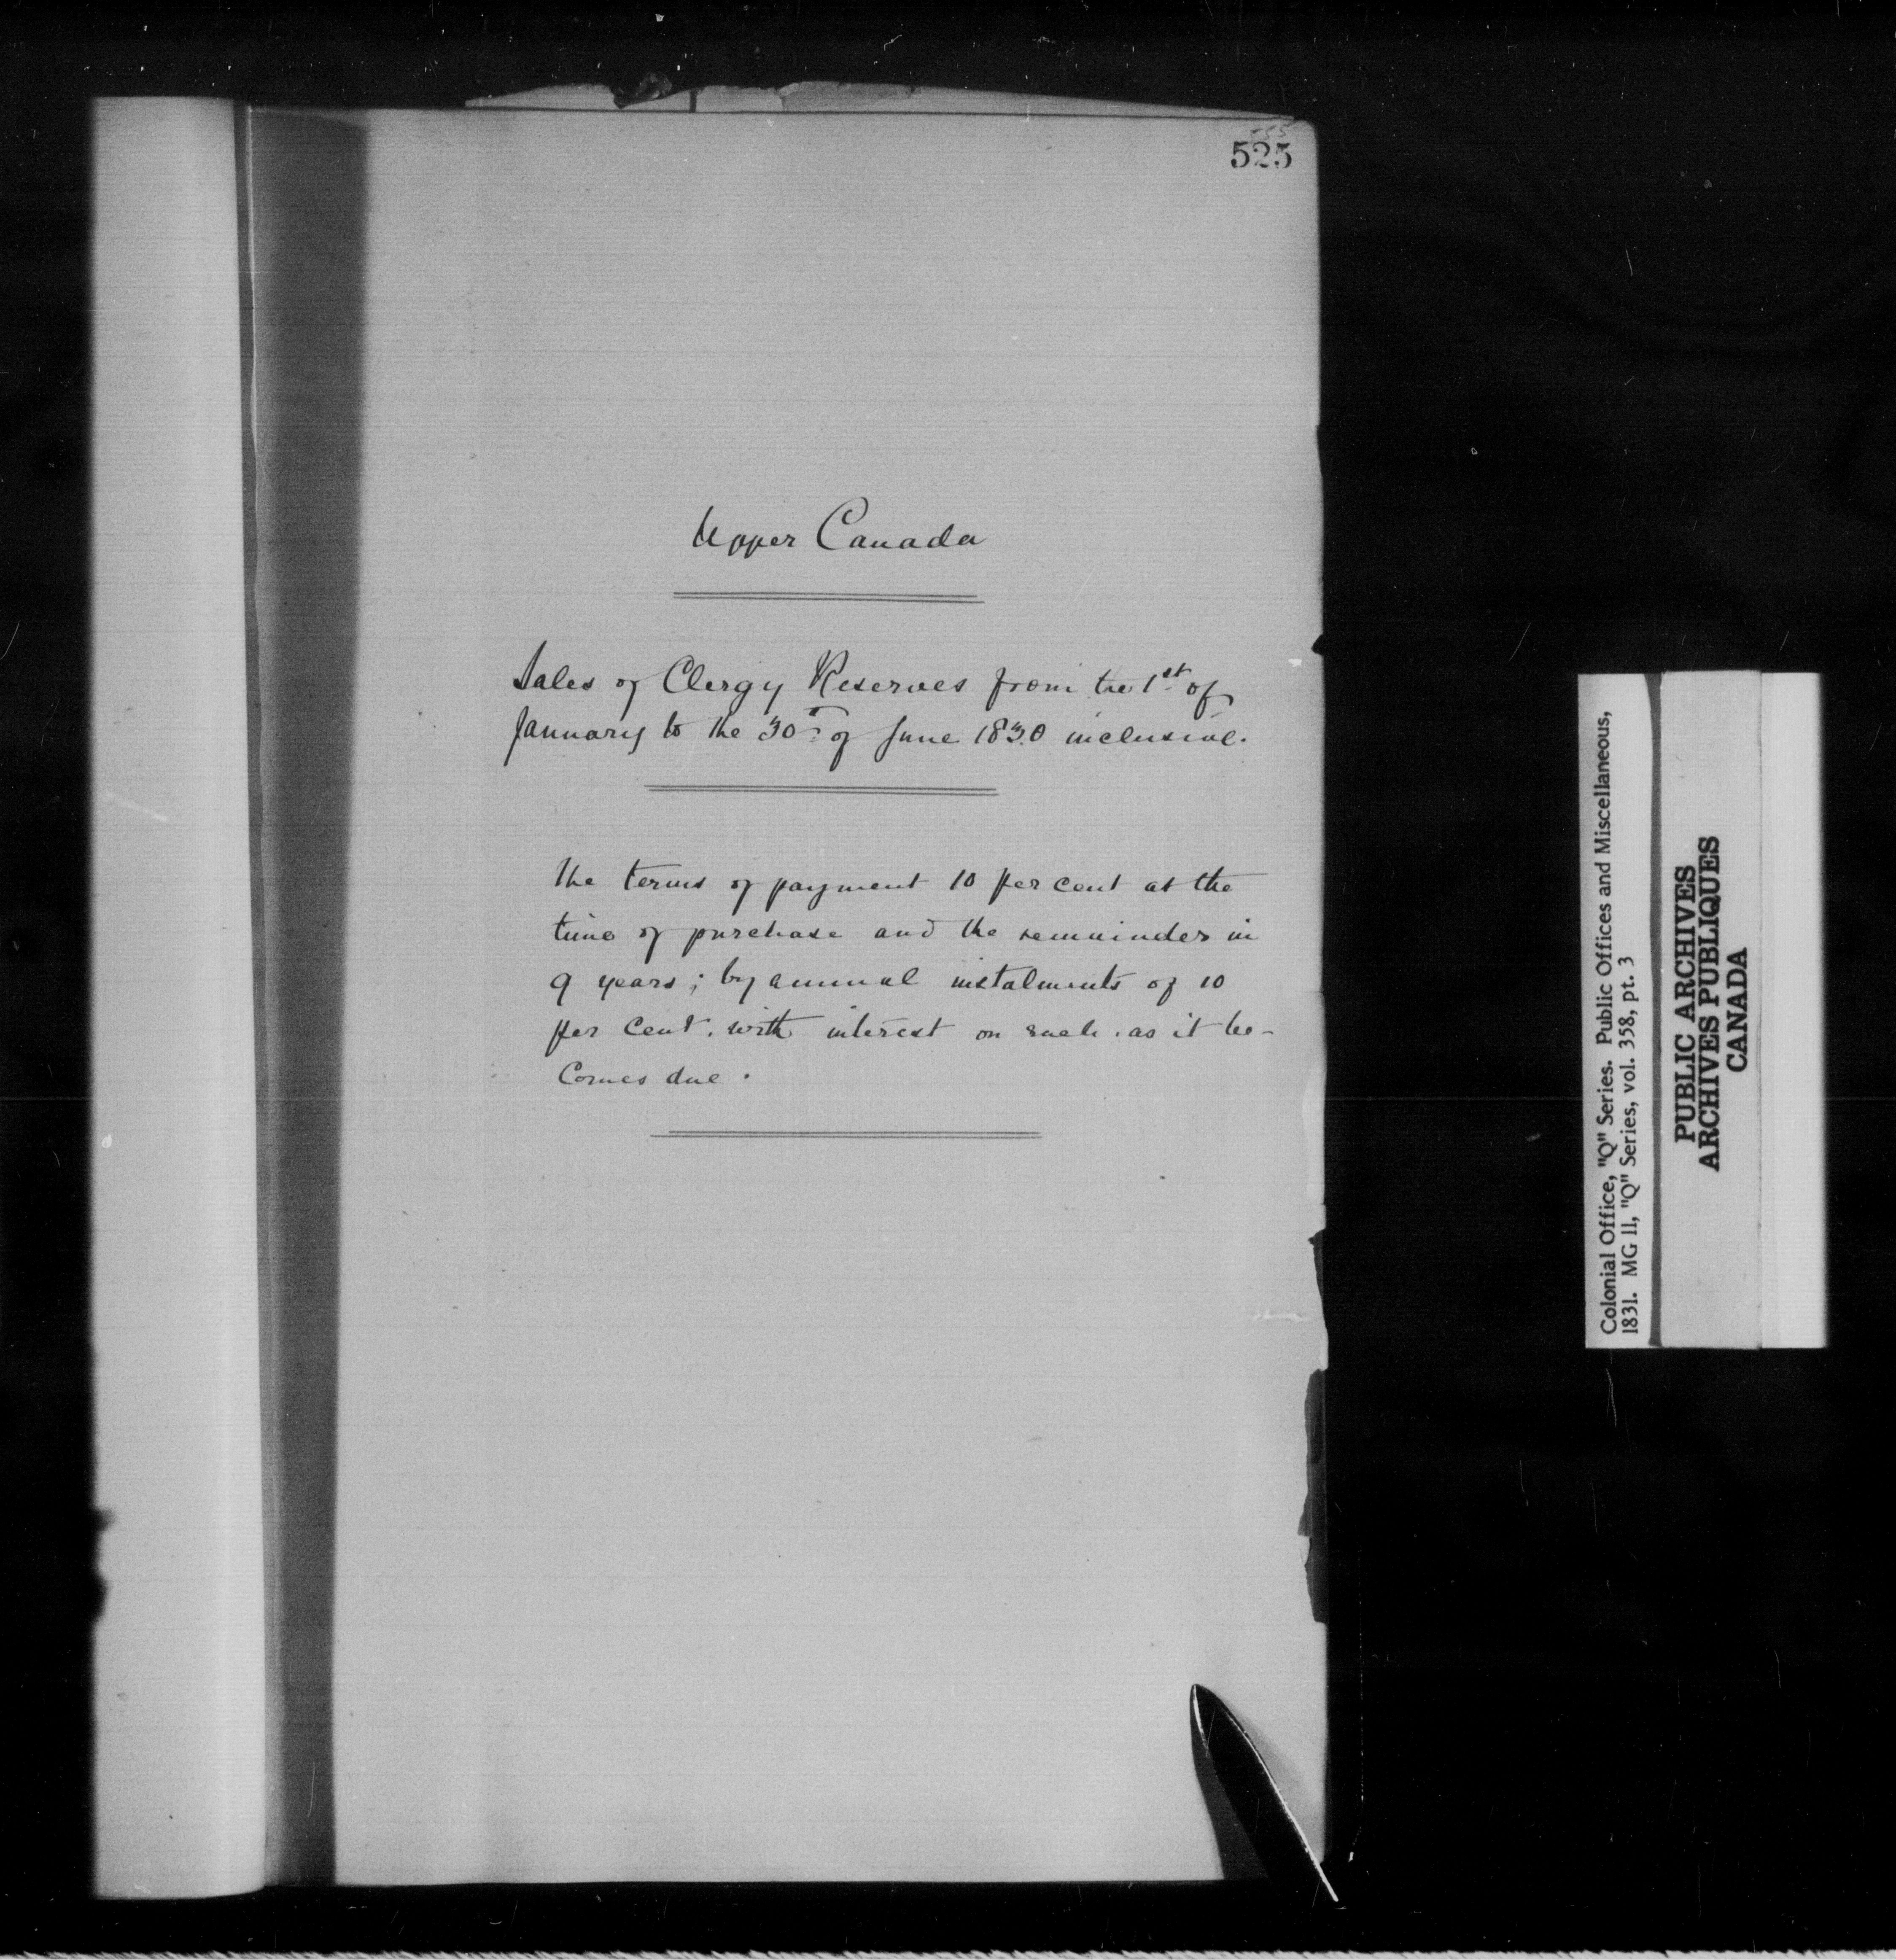 555
525
Upper Canada
Sales of Clergy Reserves from the 1st of
January to the 30th of June 1830 inclusive.
The terms of payment 10 per cent at the
time of purchase and the remainder in
9 years; by annual instalments of 10
per cent. with interest on each. as it be-
comes due.
Colonial Office, "Q" Series. Public Offices and Miscellaneous,
1831. MG 11, "Q" Series, vol. 358, pt. 3
PUBLIC ARCHIVES
ARCHIVES PUBLIQUES
CANADA